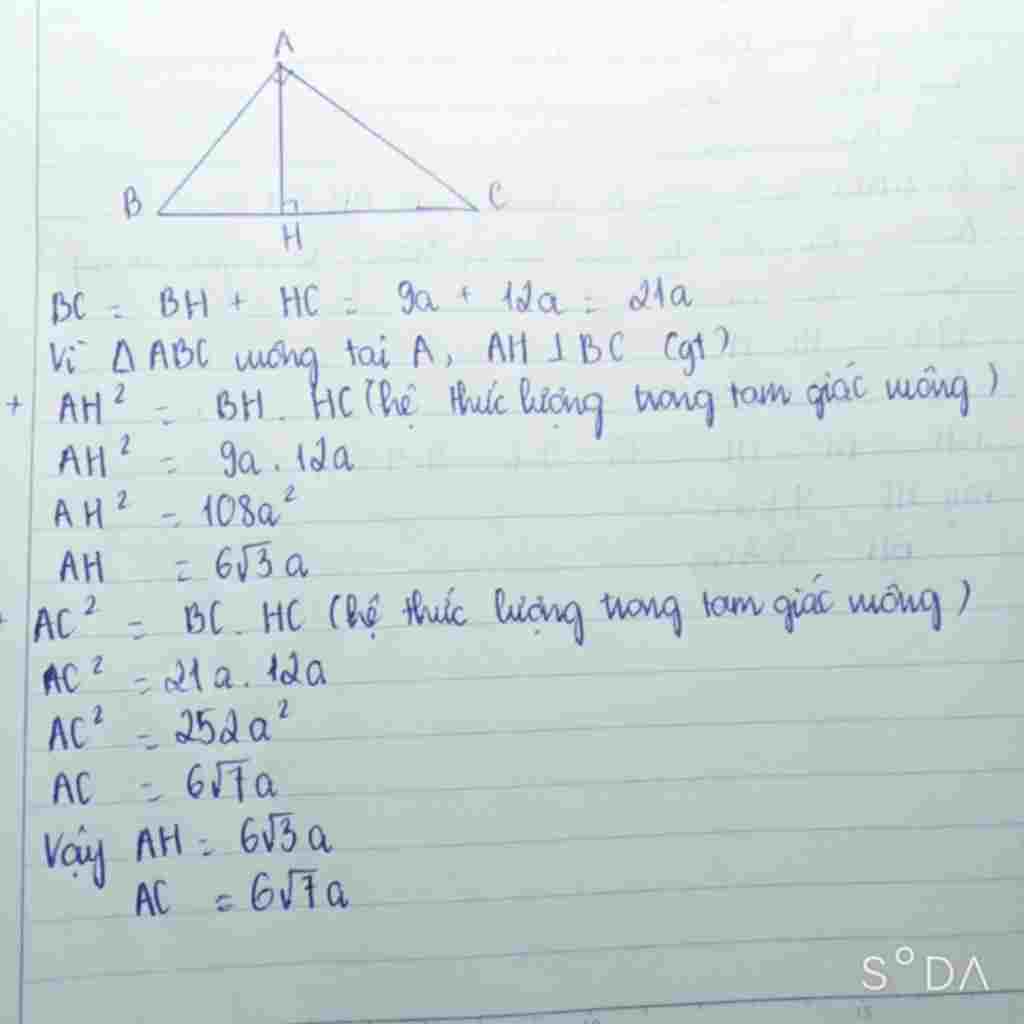 A
B
C
H
BC = BH + HC = 9a + 12a = 21a
Vì ΔABC vuông tại A, AH ⊥ BC (gt)
+ AH² = BH. HC (hệ thức lượng trong tam giác vuông)
AH² = 9a . 12a
AH² = 108a²
AH = 6√3 a
+ AC² = BC. HC (hệ thức lượng trong tam giác vuông)
AC² = 21a. 12a
AC² = 252a²
AC = 6√7a
Vậy AH = 6√3a
AC = 6√7a
SODA